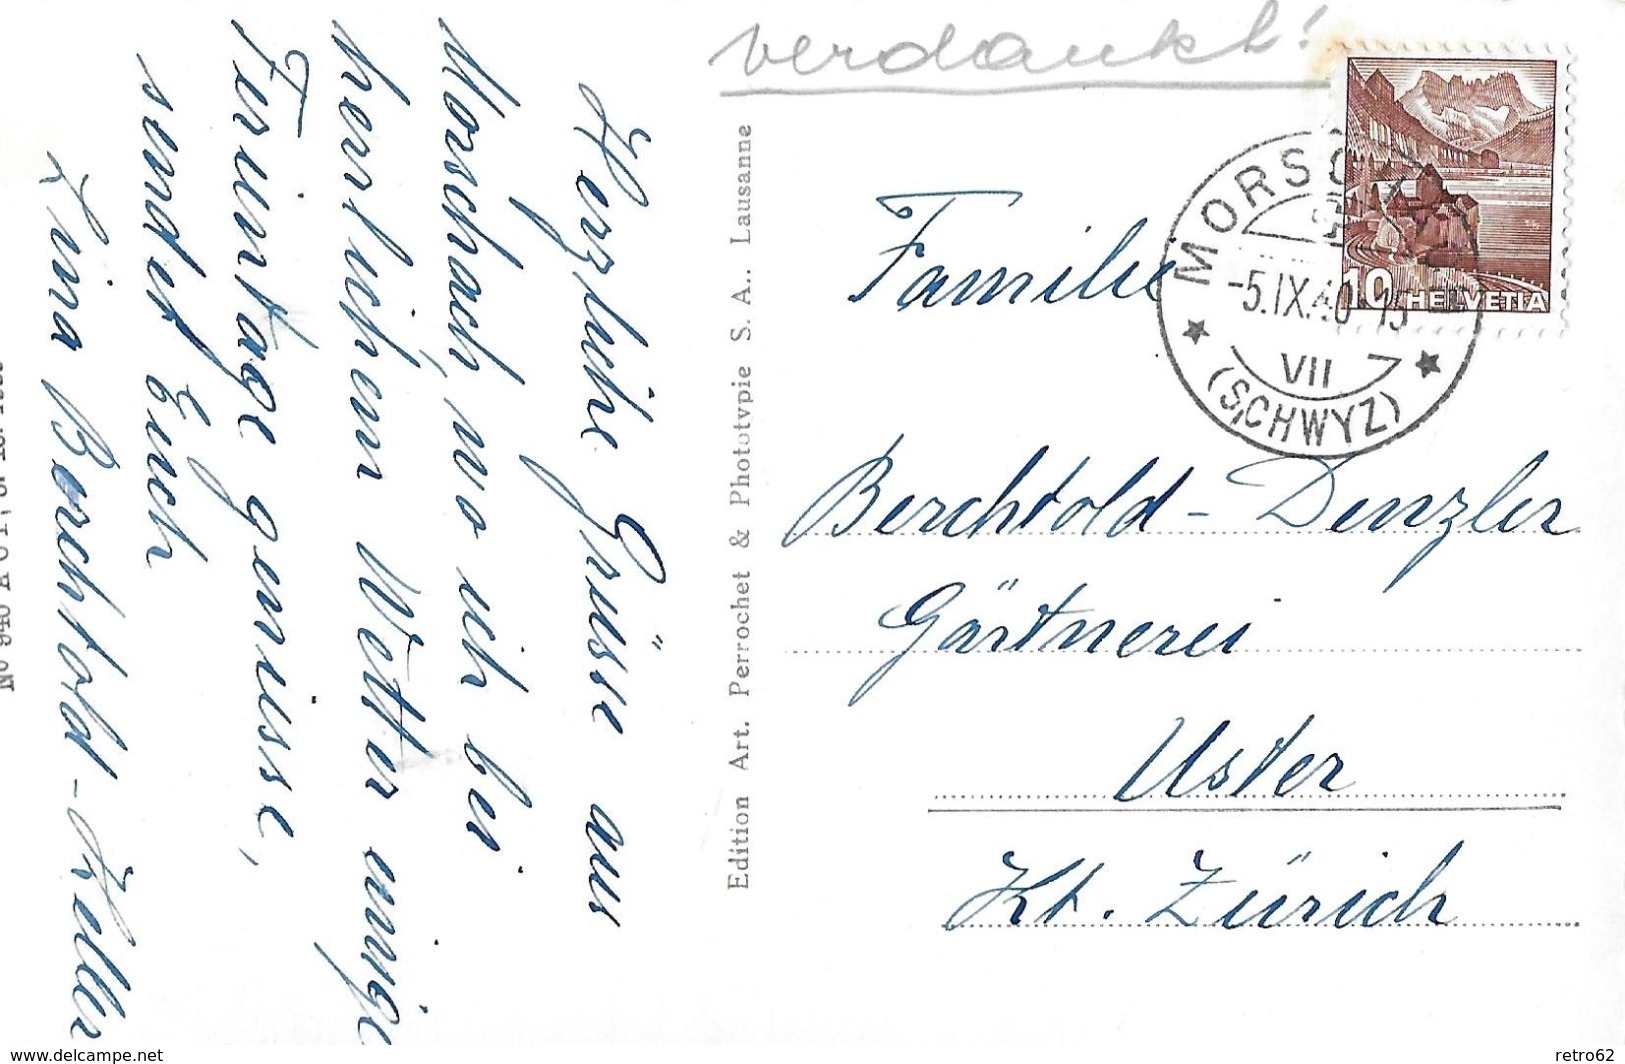 verdankt!
Herzliche Grüsse aus
Morschach, wo ich bei
herrlichem Wetter einige
Ferientage geniesse,
sendet Euch
Lina Berchtold-Keller
Edition Art. Perrochet & Phototypie S. A., Lausanne
HELVETIA
10
MORSC
-5.IX.40-15
VII
(SCHWYZ)
Familie
Berchtold-Denzler
Gärtnerei
Uster
Kt. Zürich
www.delcampe.net
retro62